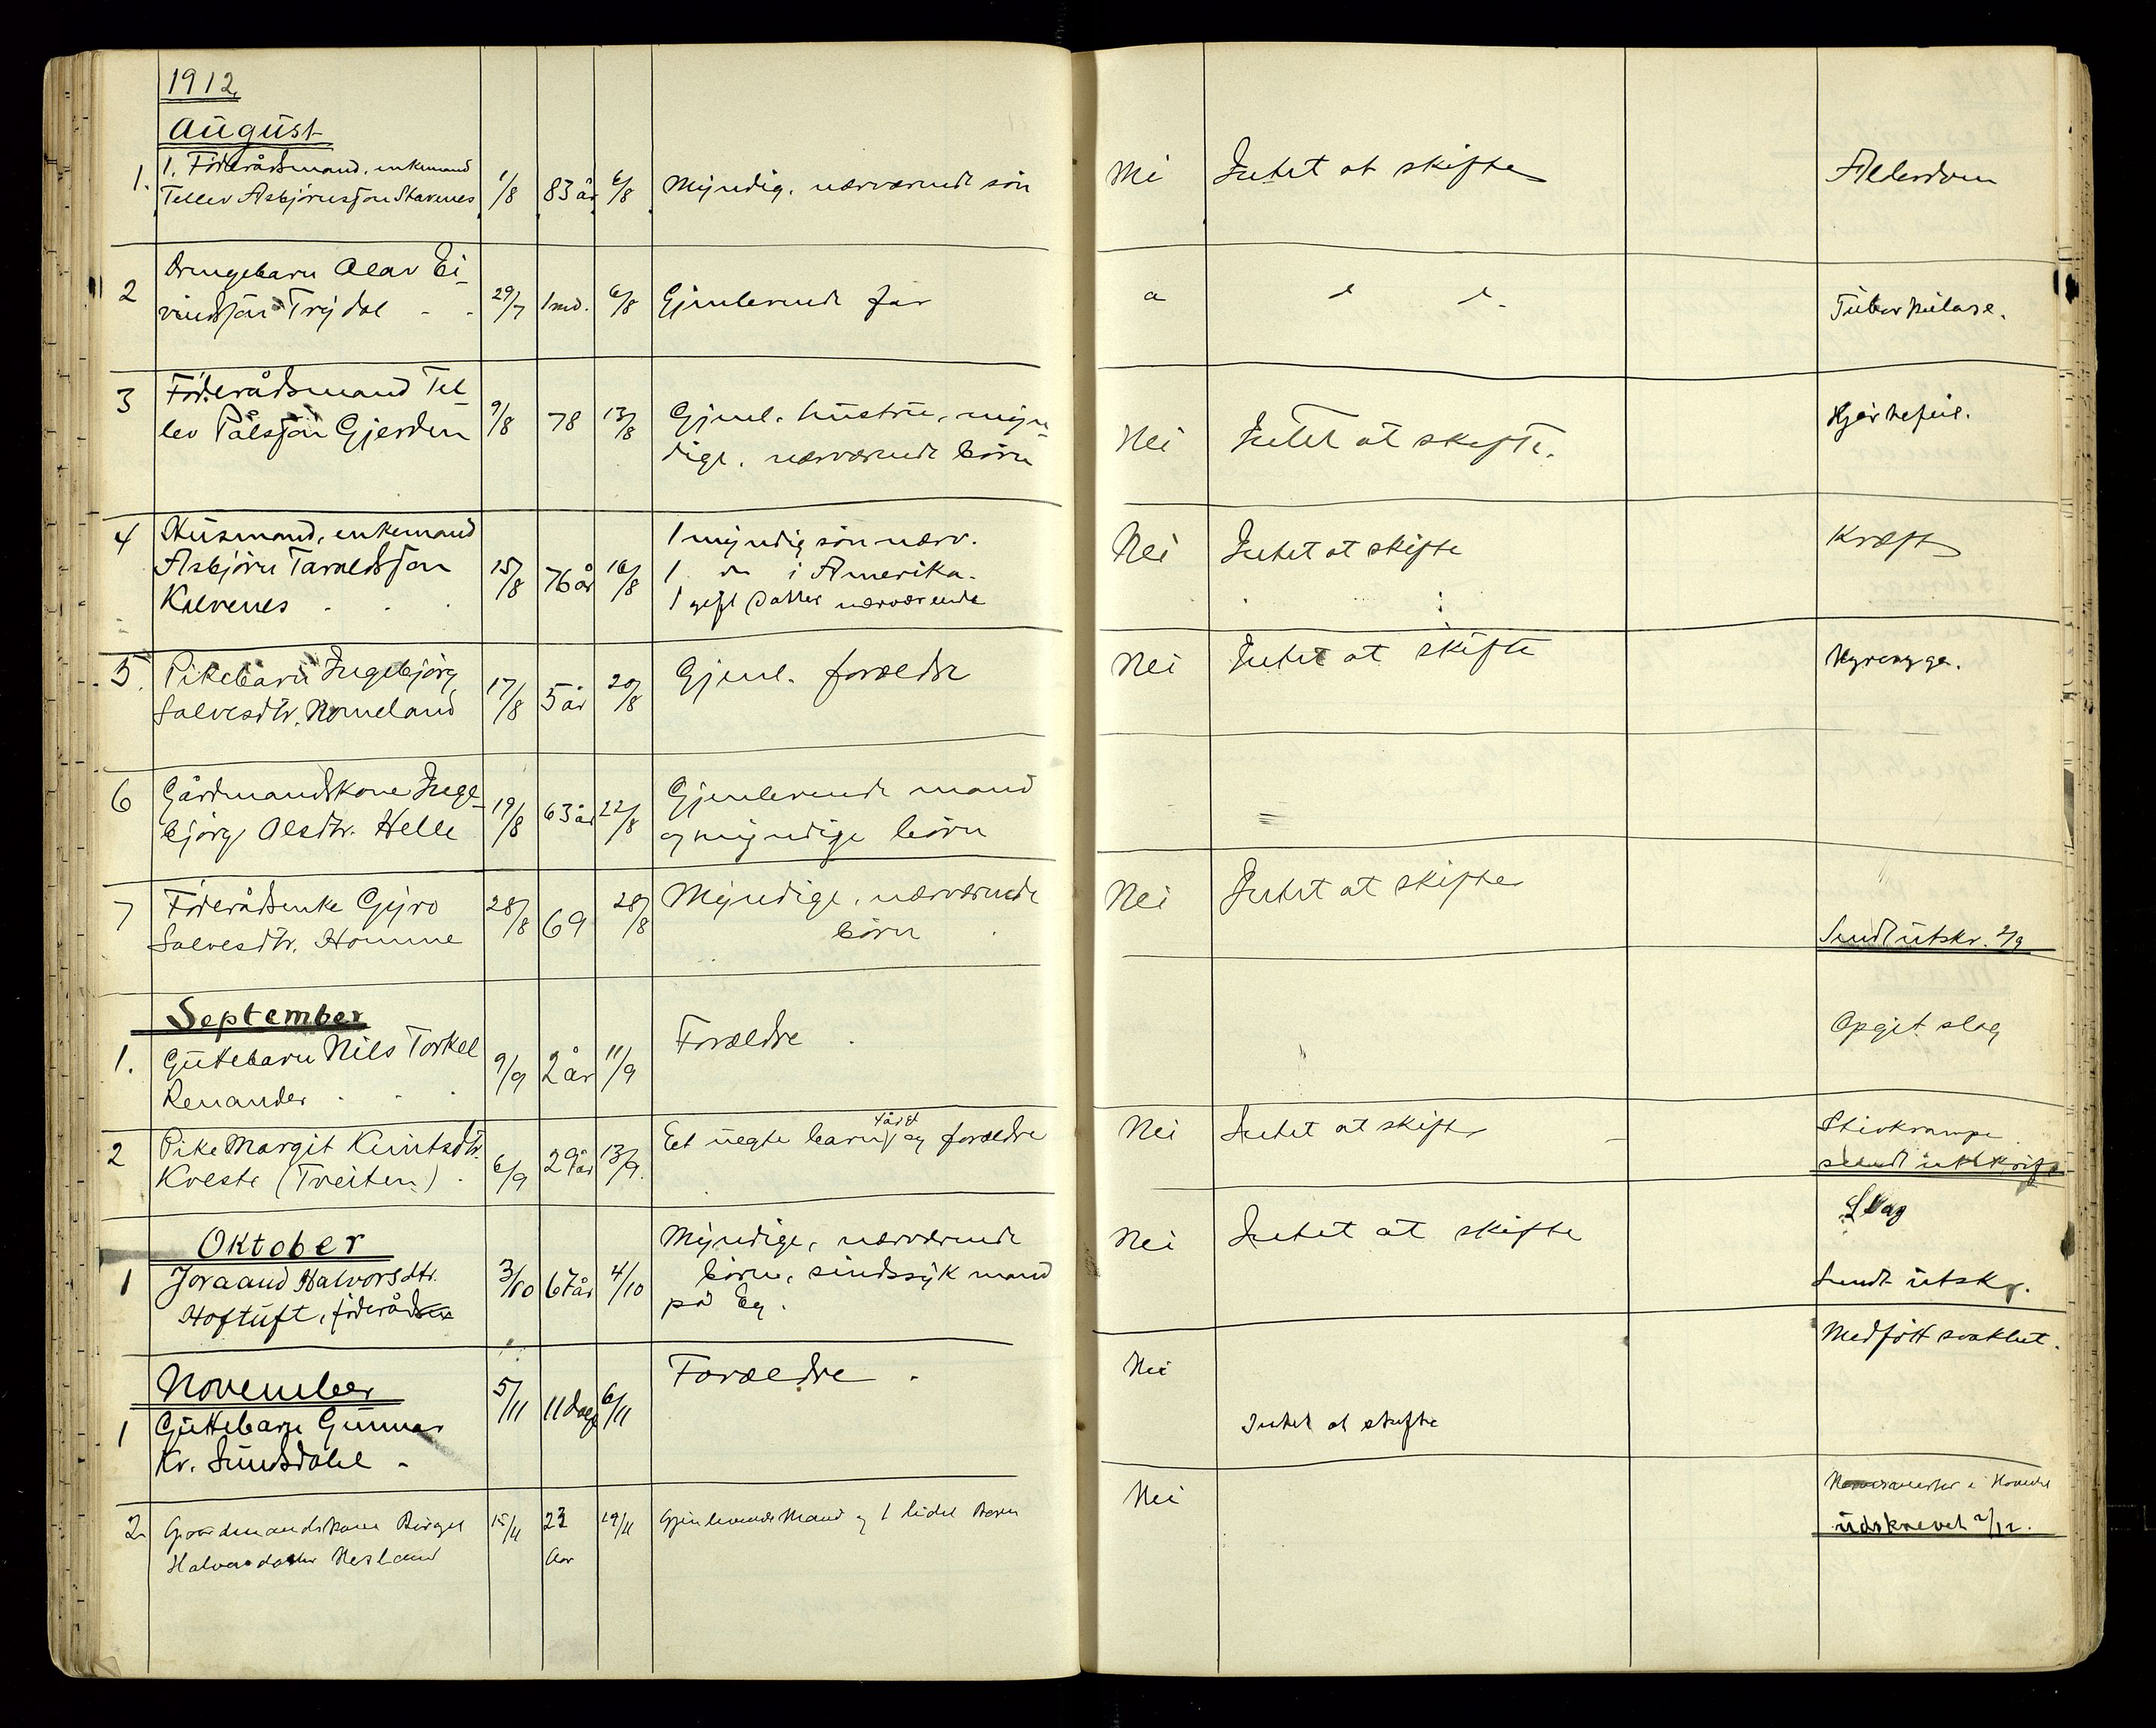 1912
August
1. 1. Föderådsmand, enkemand
Tellev Asbjörnsson Stavenes 1/8 83 år 6/8 Myndig, nærværende sön Nei Intet at skifte Alderdom
2 Drengebarn Olav Ei-
vindsson Trydal - - 29/7 1 md. 6/8 Gjenlevende far Tuberkulose.
3 Föderådsmand Tel-
lev Pålsson Gjerden 9/8 78 13/8 Gjenl. hustru, myn-
dige, nærværende börn Nei Intet at skifte. Hjertefeil.
4 Husmand, enkemand
Asbjörn Taraldsson
Kalvenes . . . 15/8 76 år 16/8 1 myndig sön nærv.
1 do i Amerika.
1 gift datter nærværende Nei Intet at skifte Kræft
5. Pikebarn Ingebjörg
Salvesdtr. Nomeland 17/8 5 år 20/8 Gjenl. forældre Nei Intet at skifte Nyresyge.
6 Gårdmandskone Inge-
björg Olsdtr. Helle 19/8 63 år 22/8 Gjenlevende mand
og myndige börn =
7 Föderådsenke Gyro
Salvesdtr. Homme 28/8 69 28/8 Myndige, nærværende
börn Nei Intet at skifte
Sendt utskr. 2/9
September
1. Guttebarn Nils Torkel
Renander . . . 9/9 2 år 11/9 Forældre . Opgit slag
2 Pike Margit Knutsdtr.
Kveste (Treiten) . 6/9 29 år 13/9. Eet uegte barn, og forældre Nei Intet at skifte Stivkrampe
sendt utskrift
Oktober
1 Joraand Halvorsdtr.
Hoftuft, föderåds 3/10 67 år 4/10 Myndige, nærværende
börn, sindssyk mand
på Eg. Nei Intet at skifte Slag
Sendt utskr.
November
1 Guttebarn Gunnar
Kr. Sundsdahl - 5/11 11 dage 6/11 Forældre . Nei Intet at skifte Medfött svakhet.
2 Gaardmandskone Birget
Halvorsdatter Nesland 15/11 23
Aar 19/11 Gjenlevende Mand og 1 lidet Barn Nei i Hovedet
udskrevet 2/12.